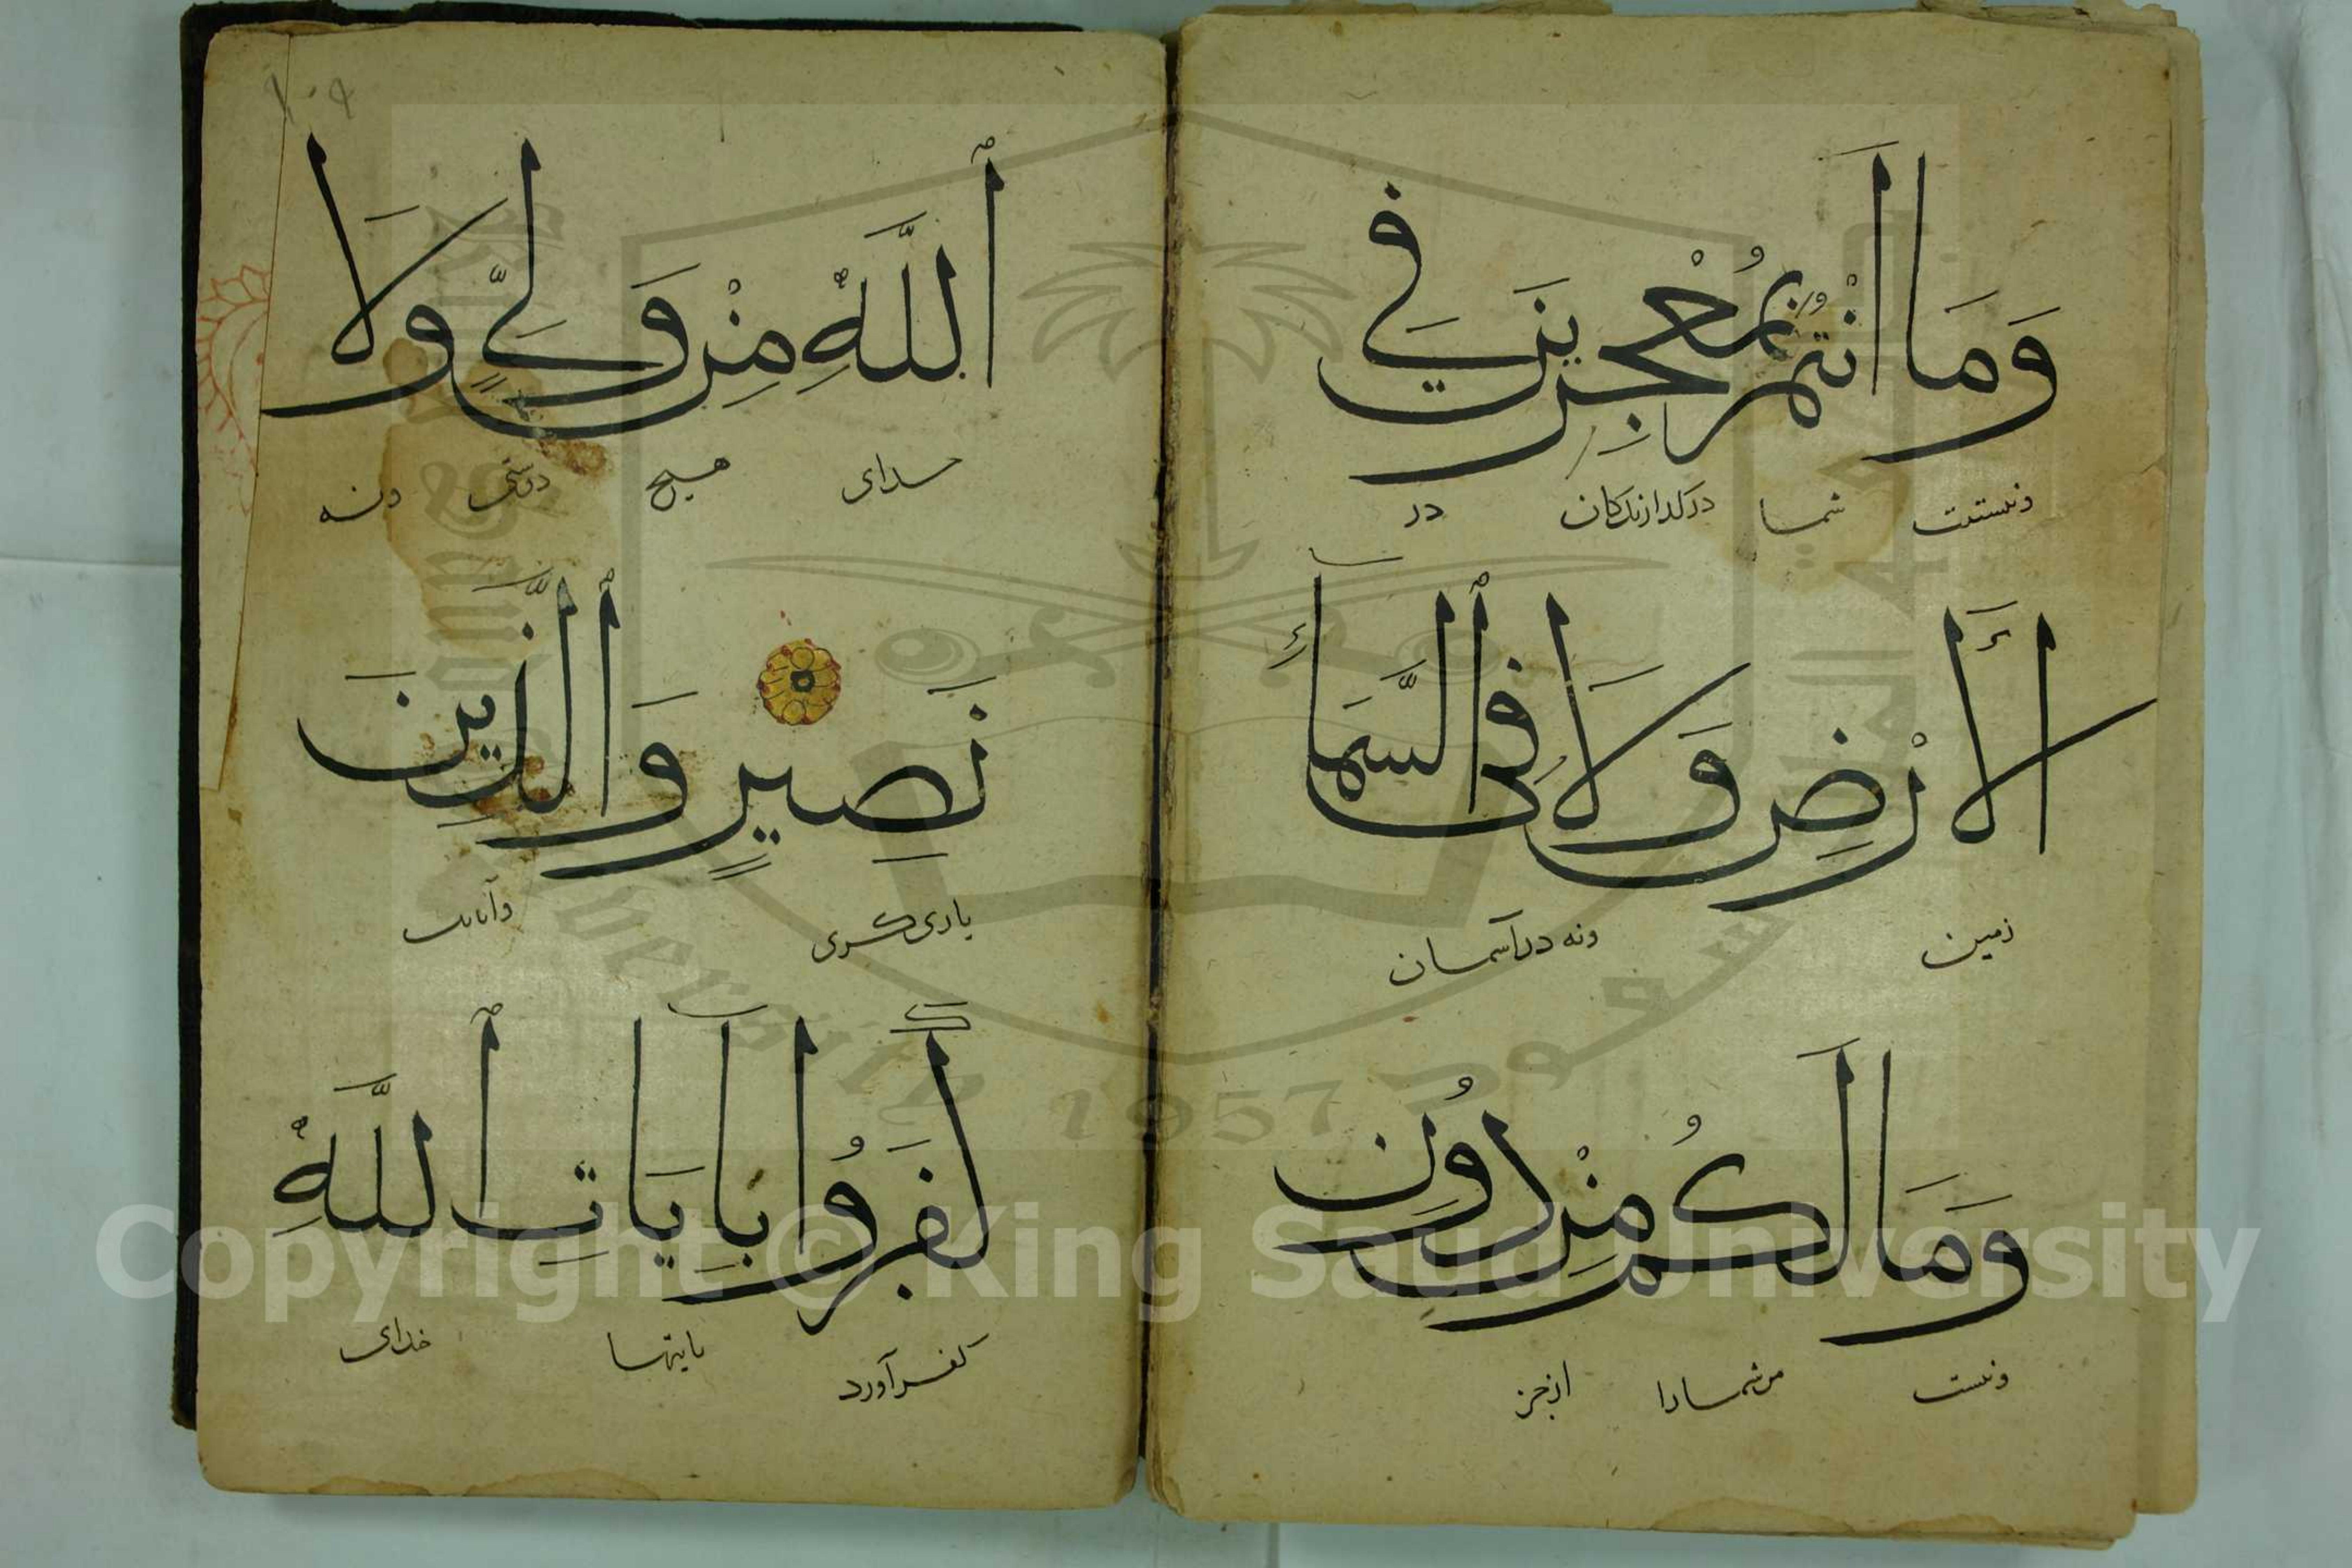 وَمَا أَنْتُمْ بِمُعْجِزِينَ فِي
ونیستیت شما درکذارندکان در
الْأَرْضِ وَلَا فِي ٱلسَّمَاءِ
زمین ونه در آسمان
وَمَا لَكُمْ مِنْ دُونِ
ونیست مرشما را ازجز
ٱللَّهِ مِنْ وَلِيٍّ وَلَا
خدای هیچ دوستی ونه
نَصِيرٍ وَالَّذِينَ
یاری کری وآنانک
كَفَرُوا بِآيَاتِ ٱللَّهِ
کفر آورد بایتها خدای
١٠٩
Copyright © King Saud University
1957